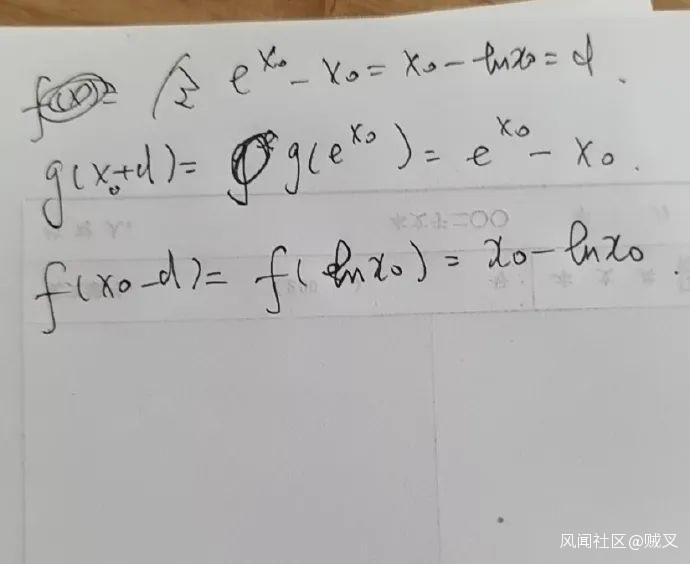 f(x)= 令 e^{x₀} - x₀ = x₀ - lnx₀ = d.
g(x₀+d) = g(e^{x₀}) = e^{x₀} - x₀.
f(x₀-d) = f(lnx₀) = x₀ - lnx₀.
风闻社区@贼叉